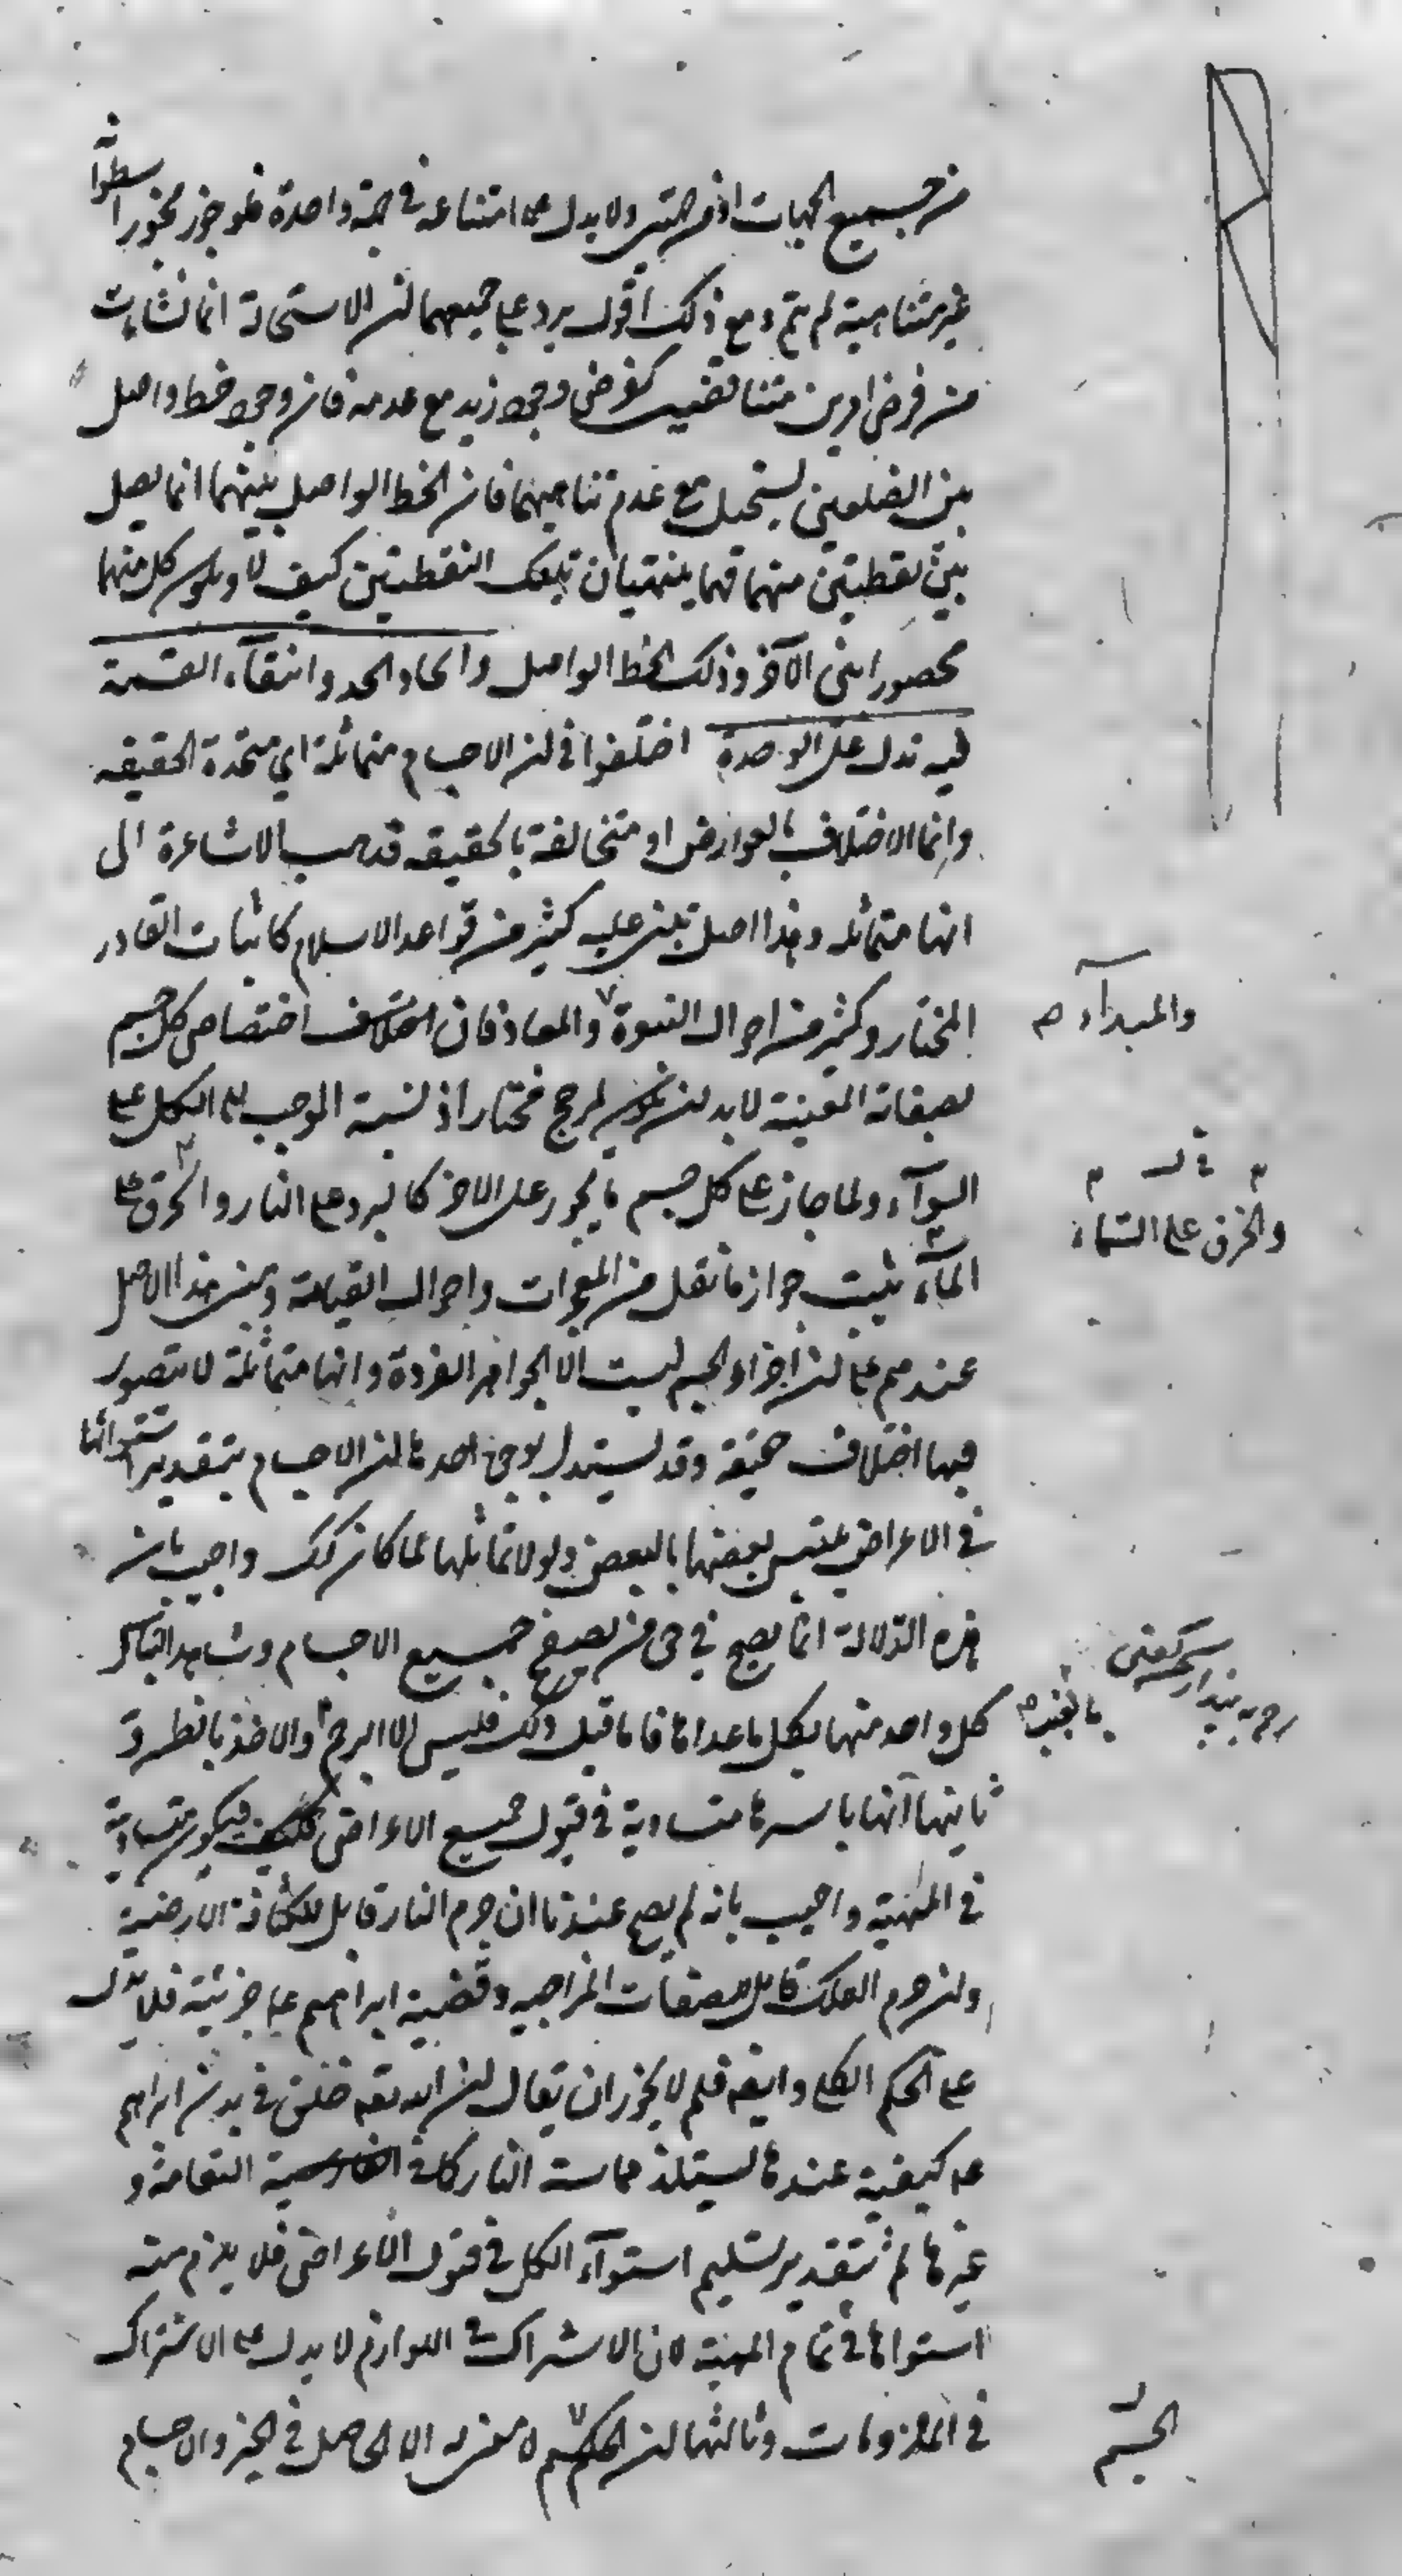 من جميع الجهات او من جهتين ولا يدل على امتناعه في جهة واحدة فلو جوز مجوز اسطوانة
غير متناهية لم يتم ومع ذلك اقول يرد على جميعها لن الاستحالة انما نشات
من فرض امرين متناقضين كفرض وجود زيد مع عدمه فان وجود خط واصل
بين الضلعين يستحيل مع عدم تناهيهما فان الخط الواصل بينهما انما يصل
بين نقطتين منهما فهما ينتهيان بتلك النقطتين كيف لا ويكون كل منهما
محصورا بين الآخر وذلك الخط الواصل واتحاد الحد وانتفاء القسمة
فيه تدل على الوحدة اختلفوا في لن الاجسام متماثلة اي متحدة الحقيقه
وانما الاختلاف بالعوارض او متخالفة بالحقيقه فذهب الاشاعرة الى
انها متماثله وهذا اصل يبنى عليه كثير من قواعد الاسلام كاثبات القادر
المختار وكثير من احوال النبوة والمعاد فان اختصاص كل جسم
والمبداء صح
بصفاته المعينة لا بد لن يكون لمرجح مختار اذ نسبة الموجب الى الكل على
السواء ولما جاز على كل جسم ما يجوز على الاخر كالبرد على النار والحرق على
والخرق على السماء
الماء ثبت جواز ما نقل من المعجزات واحوال القيامة ومبنى هذا الاصل
عندهم على لن اجزاء الجسم ليست الا الجواهر الفردة وانها متماثلة لا يتصور
فيها اختلاف حقيقة وقد يستدل بوجوه احدها لن الاجسام بتقدير استوائها
في الاعراض يلتبس بعضها بالبعض ولولا تماثلها لما كان كك واجيب بان
هذه الدلالة انما يصح في حق من تصفح جميع الاجسام وشاهد التباس
كل واحد منها بكل ما عداها فاما قبل ذلك فليس الا الرجم والاخذ بالظن
بالغيب صح
ثانيها انها باسرها متساوية في قبول جميع الاعراض فيكون متساوية
في المهية واجيب بانه لم يصح عندنا ان جرم النار قابل للكثافة الارضية
ولن جرم الفلك قابل للصفات المزاجيه وقضية ابراهيم ع جزئية فلا يدل
على الحكم الكلي وايضه فلم لا يجوز ان يقال لن الله تعه خلق في بدن ابراهيم
ع كيفية عندها يستلذ مماسة النار كما في النعامة و
غيرها ثم بتقدير تسليم استواء الكل في قبول الاعراض فلا يلزم منه
استواها في تمام المهية لان الاشتراك في اللوازم لا يدل على الاشتراك
في الملزومات وثالثها لن الجسم لا معنى له الا الحاصل في الحيز والاجسام
الجسم